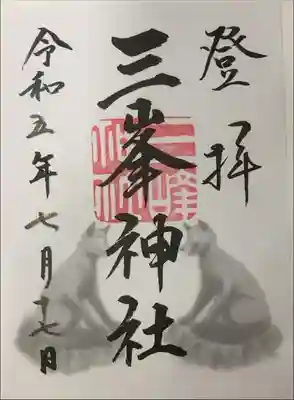 登拝
三峯神社
令和五年七月十七日